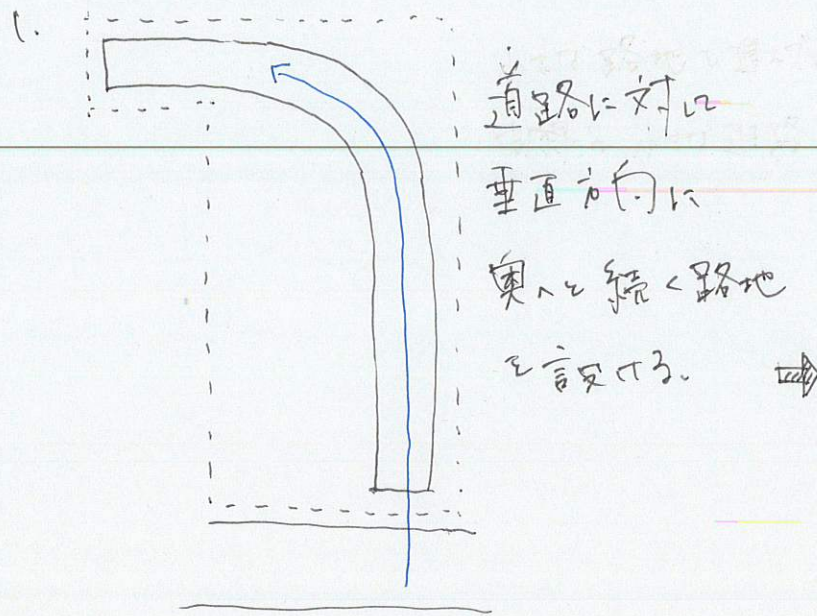 1.
道路に対して
垂直方向に
奥へと続く路地
を設ける。